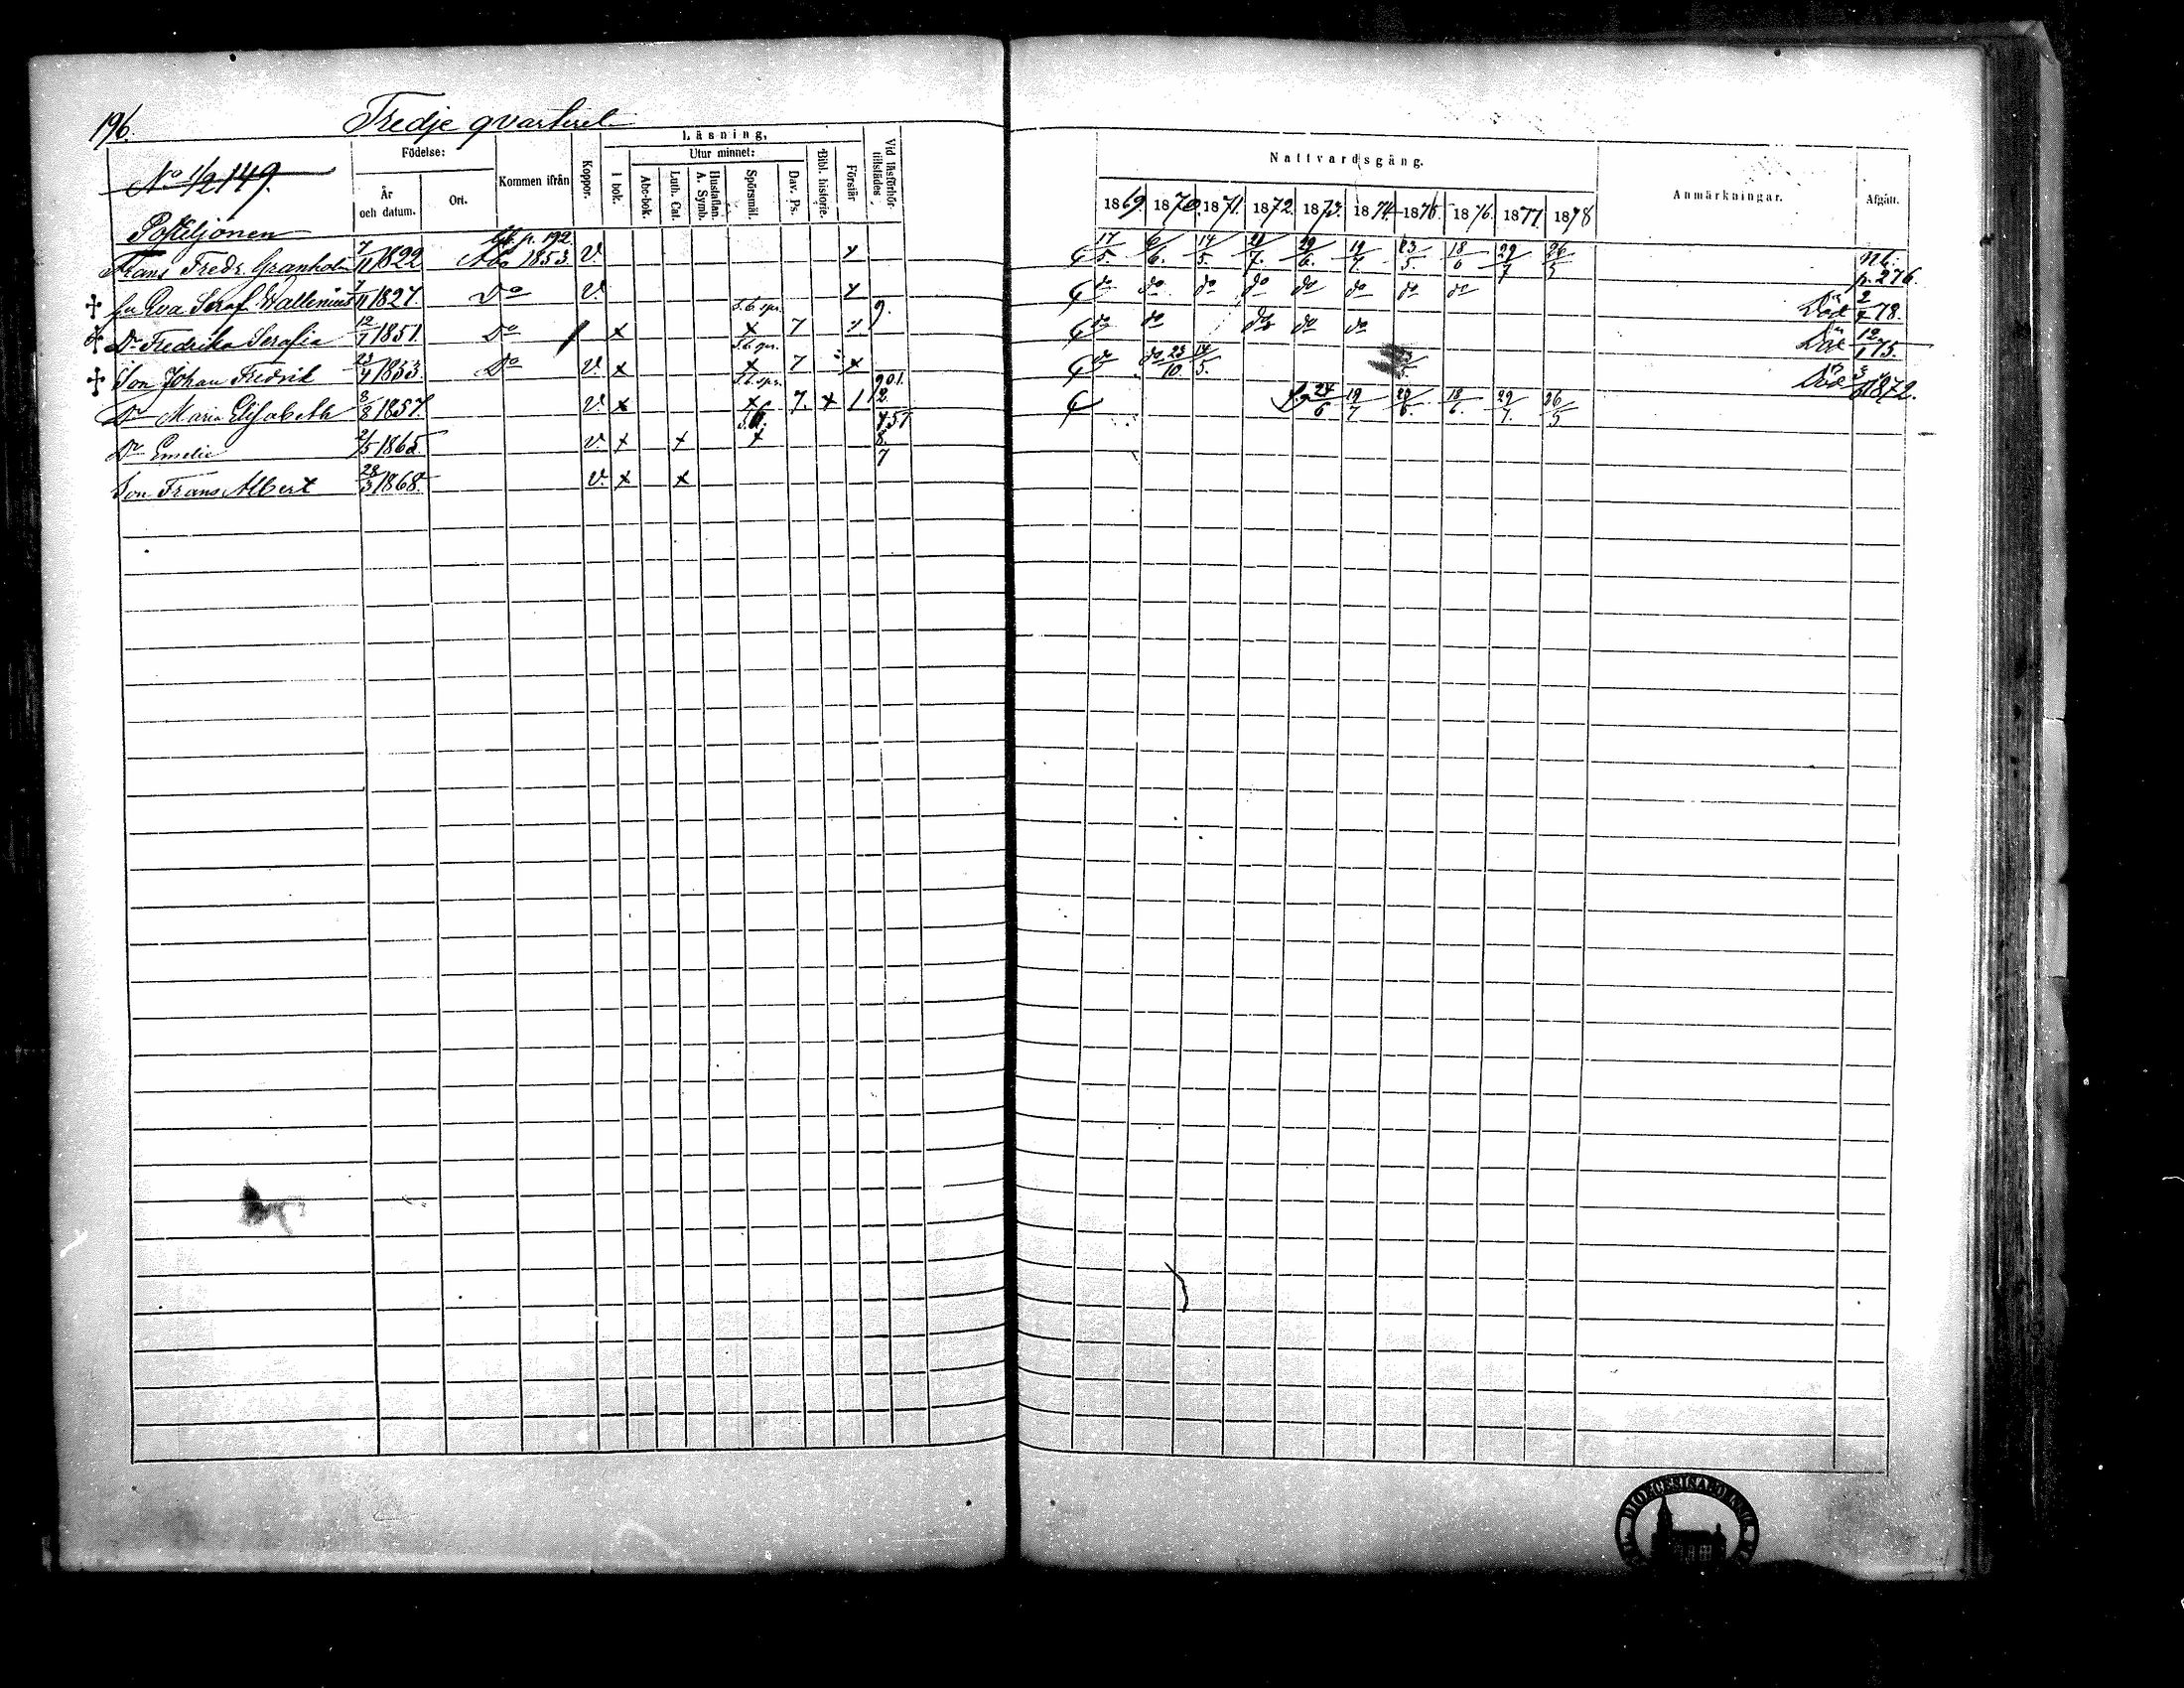 196.
Tredje qvarteret
Födelse: Kommen ifrån Koppor. Läsning. Vid läsförhör tillstädes
Utur minnet:
År och datum. Ort. I bok. Abc-bok. Luth. Cat. Hustaflan. A. Symb. Spörsmål. Dav. Ps. Bibl. historie. Förstår
No 1/2 149.
Postiljonen p. 192
Frans Fredr. Granholm 7/11 1822 Åbo 1853 V.
fru Eva Seraf. Wallenius 7/11 1827. Do V. 9.
Dr Fredrika Serafia 12/7 1851. Do x x 7
Son Johan Fredrik 23/11 1853. Do V. x x 7 x
Dr Maria Elisabeth 8/8 1857. V. x x 7. x 1
Dr Emelie 2/5 1865. V. x x x 8.
7
Son Frans Albert 28/3 1868 V. x x
Nattvardsgång. Anmärkningar. Afgått.
1869 1870. 1871. 1872. 1873. 1874 1875. 1876. 1877. 1878
17/5. 6/6. 14/5. 21/7. 29/6. 19/7. 23/5. 18/6 29/7 26/5 p. 276.
do do do do do do do do Död 2/7 78.
do do do do do Död 12/1 75.
do do 23/10. 14/5. Död 1872.
24/6 19/7 18/6. 29/7. 26/5